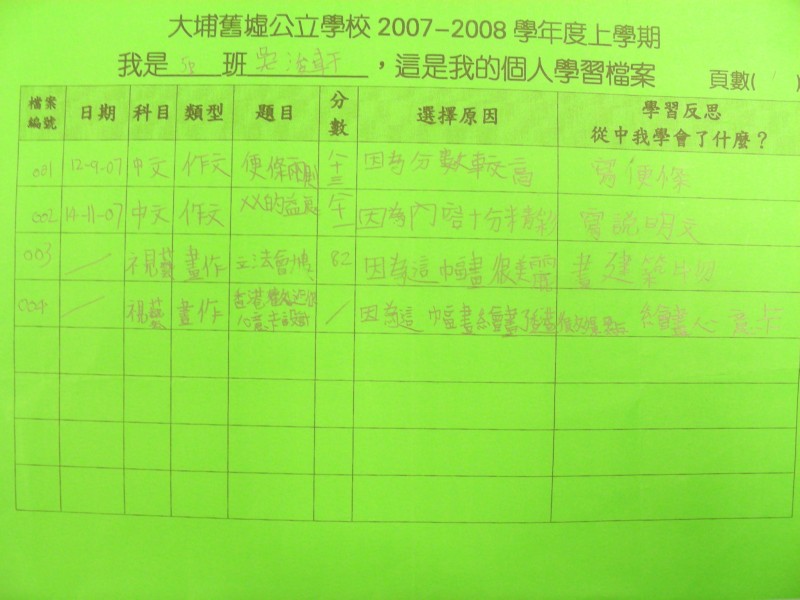 大埔舊墟公立學校 2007-2008 學年度上學期
我是 班 ，這是我的個人學習檔案 頁數( )
檔案編號 日期 科目 類型 題目 分數 選擇原因 學習反思
從中我學會了什麼？
001 12-9-07 中文 作文 便條兩則 八十三 因為分數較高 寫便條
002 14-11-07 中文 作文 XX的益處 八十 因為內容十分精彩 寫說明文
003 視藝 畫作 立法會 82 因為這幅畫很美麗 畫建築物
004 視藝 畫作 香港 設計 因為這幅畫繪畫 繪畫人